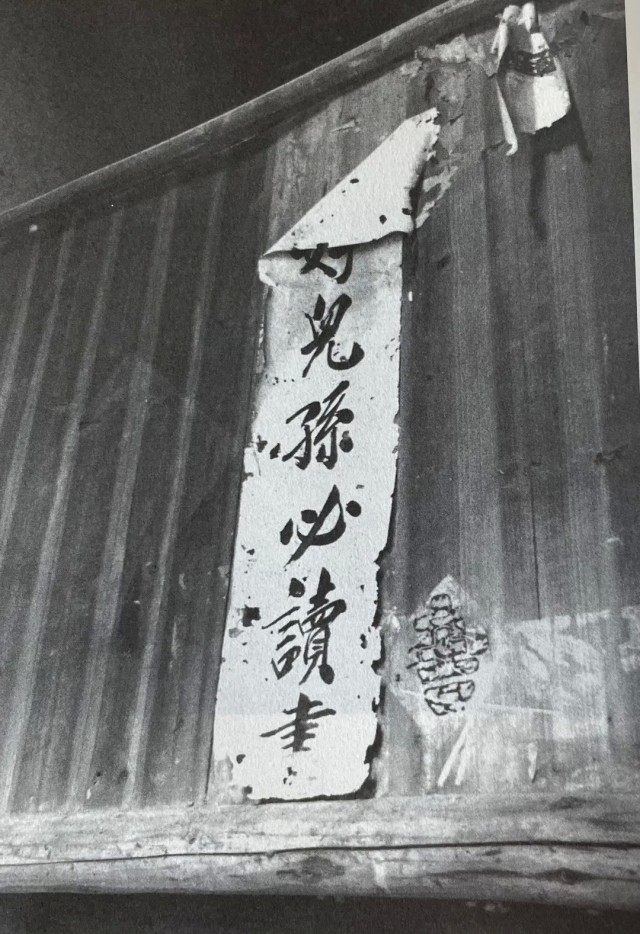 好兒孫必讀書